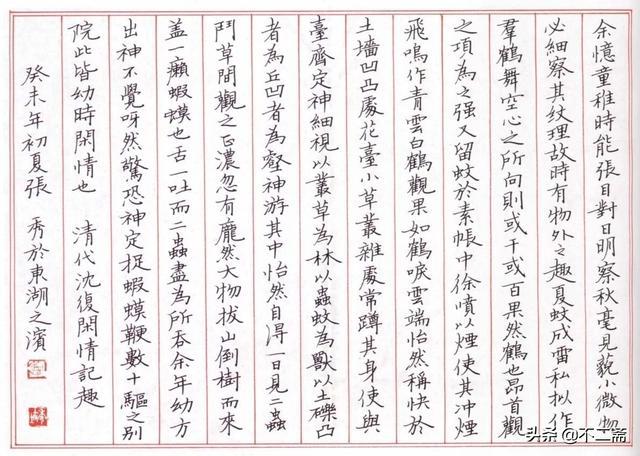 余憶童稚時能張目對日明察秋毫見藐小微物
必細察其紋理故時有物外之趣夏蚊成雷私拟作
羣鶴舞空心之所向則或千或百果然鶴也昂首觀
之項為之强又留蚊於素帳中徐噴以煙使其冲煙
飛鳴作青雲白鶴觀果如鶴唳雲端怡然稱快於
土墙凹凸處花臺小草叢雜處常蹲其身使與
臺齊定神細視以叢草為林以蟲蚊為獸以土礫凸
者為丘凹者為壑神游其中怡然自得一日見二蟲
鬥草間觀之正濃忽有龐然大物拔山倒樹而來
盖一癩蝦蟆也舌一吐而二蟲盡為所吞余年幼方
出神不覺呀然驚恐神定捉蝦蟆鞭數十驅之别
院此皆幼時閑情也 清代沈復閑情記趣
癸未年初夏張 秀於東湖之濱
头条@不二斋